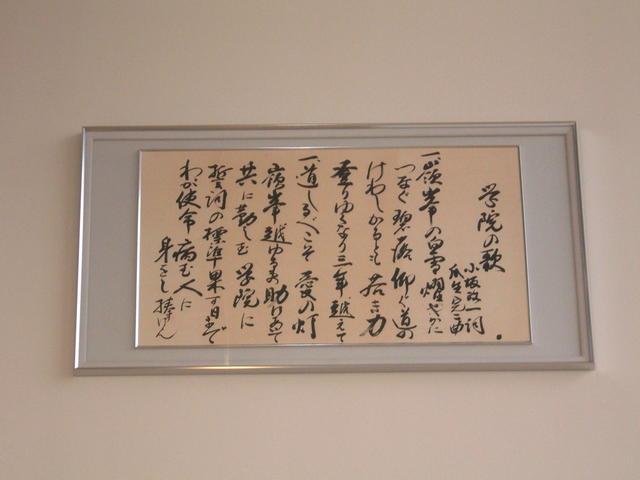 学院の歌
小坂改一詞
瓜生 曲
一、嶺峯の白雪 耀やかに
つなぐ碧落 仰ぐ道の
けわしかるとも 若き力
登りゆくなり 三年越えて
一、道しるべこそ 愛の灯
嶺峯越ゆるも 助けあて
共に励まむ 学院に
誓詞の標準 果す日まで
わが使命 病む人に
身をし捧げん